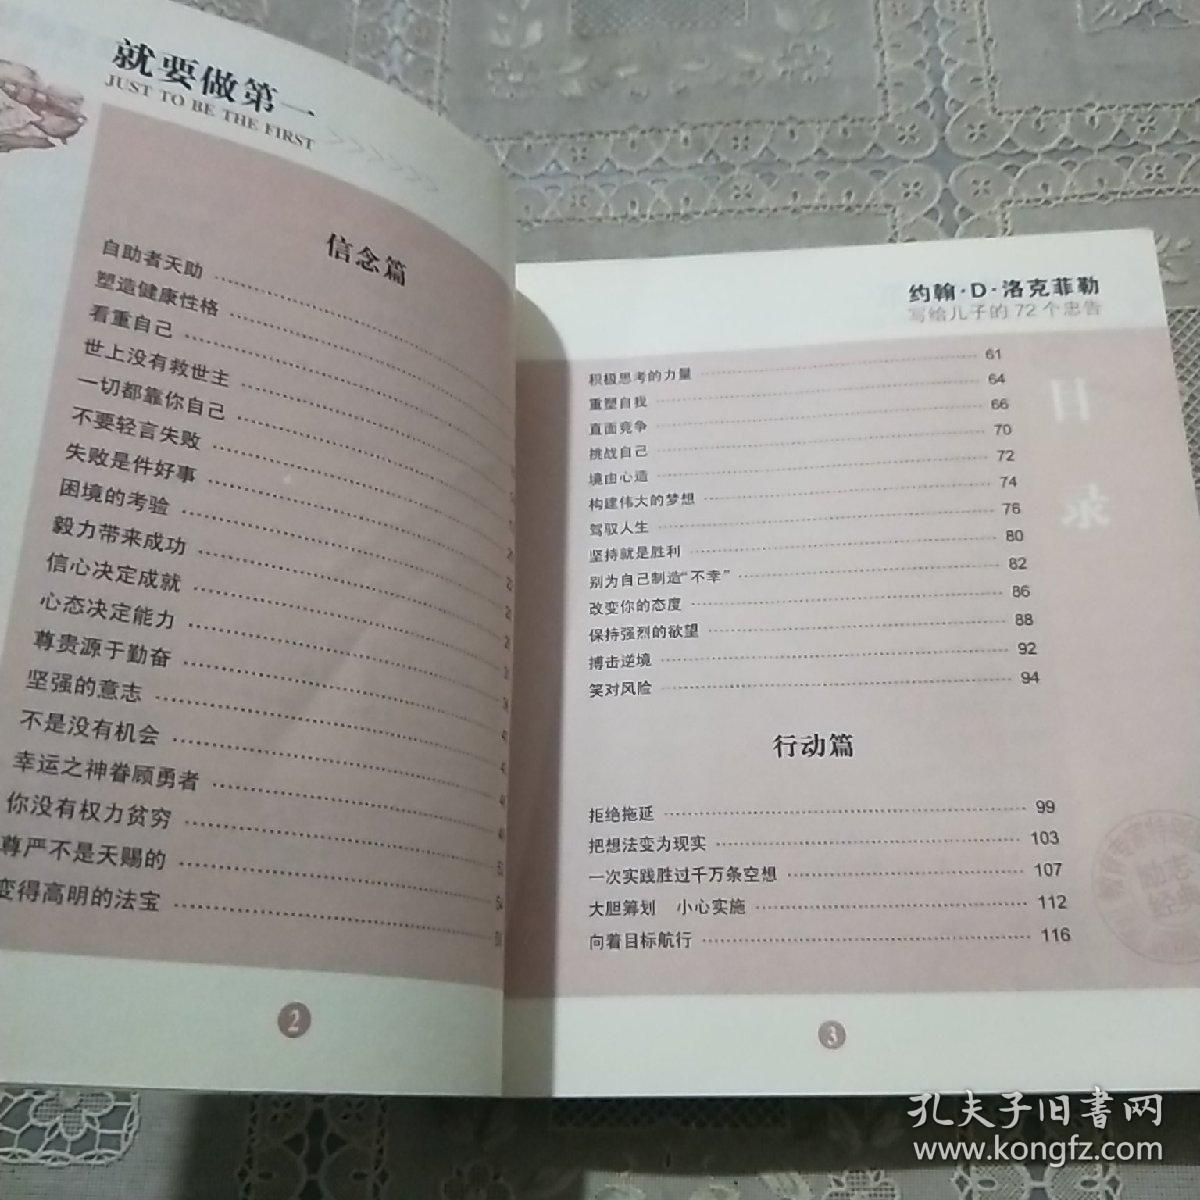 就要做第一
JUST TO BE THE FIRST
信念篇
自助者天助
塑造健康性格
看重自己
世上没有救世主
一切都靠你自己
不要轻言失败
失败是件好事
困境的考验
毅力带来成功
信心决定成就
心态决定能力
尊贵源于勤奋
坚强的意志
不是没有机会
幸运之神眷顾勇者
你没有权力贫穷
尊严不是天赐的
变得高明的法宝
2
约翰·D·洛克菲勒
写给儿子的72个忠告
目录
积极思考的力量 61
重塑自我 64
直面竞争 66
挑战自己 70
境由心造 72
构建伟大的梦想 74
驾驭人生 76
坚持就是胜利 80
别为自己制造“不幸” 82
改变你的态度 86
保持强烈的欲望 88
搏击逆境 92
笑对风险 94
行动篇
拒绝拖延 99
把想法变为现实 103
一次实践胜过千万条空想 107
大胆筹划 小心实施 112
向着目标航行 116
励志
经典
3
孔夫子旧书网
www.kongfz.com